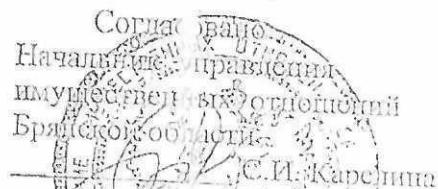 Согласовано
Начальник управления
имущественных отношений
Брянской области
С.И. Карелина